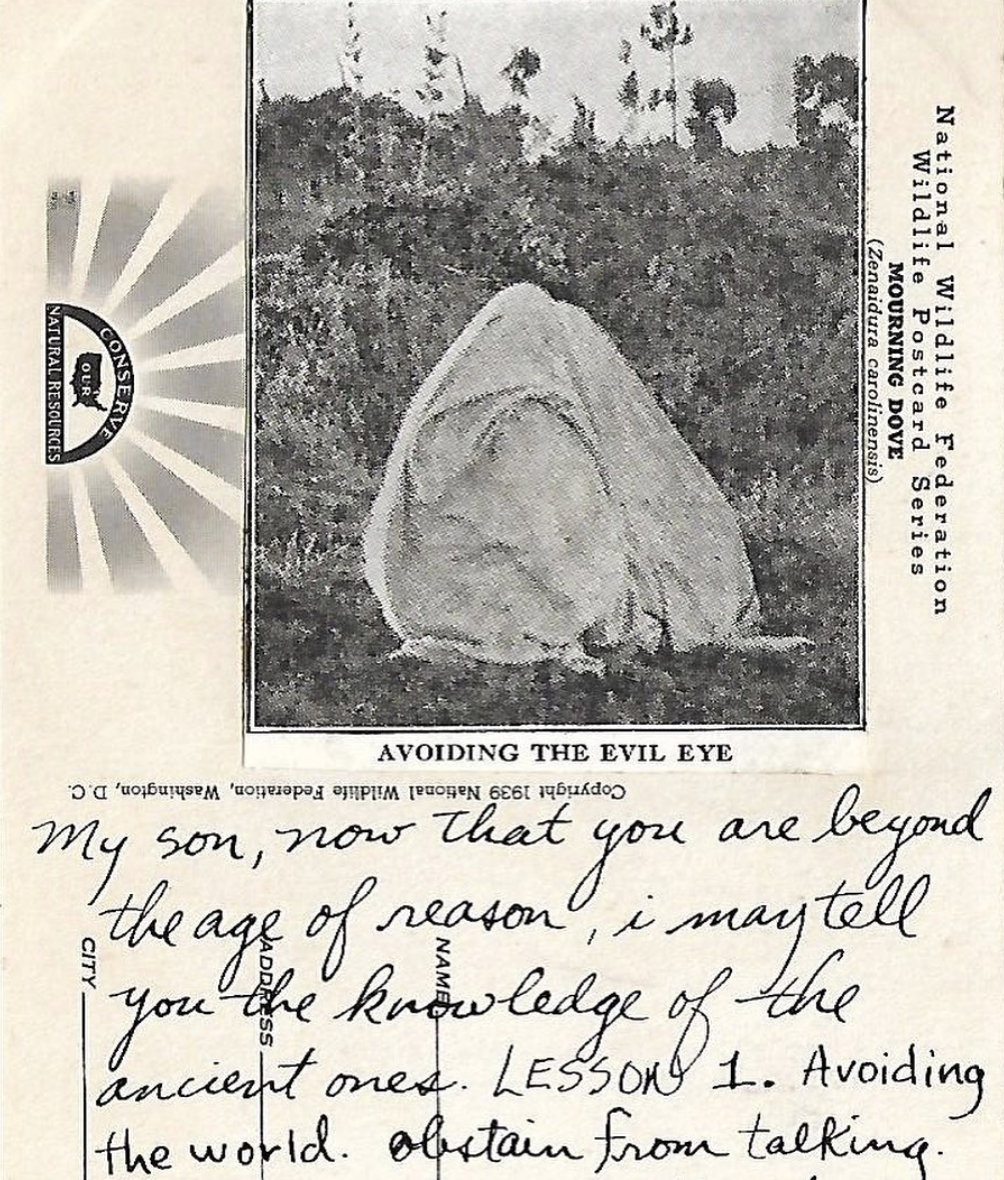 National Wildlife Federation
Wildlife Postcard Series
MOURNING DOVE
(Zenaidura carolinensis)
CONSERVE
OUR
NATURAL RESOURCES
AVOIDING THE EVIL EYE
Copyright 1939 National Wildlife Federation, Washington, D.C.
My son, now that you are beyond
the age of reason, i may tell
you the knowledge of the
ancient ones. LESSON 1. Avoiding
the world. obstain from talking.
NAME
ADDRESS
CITY